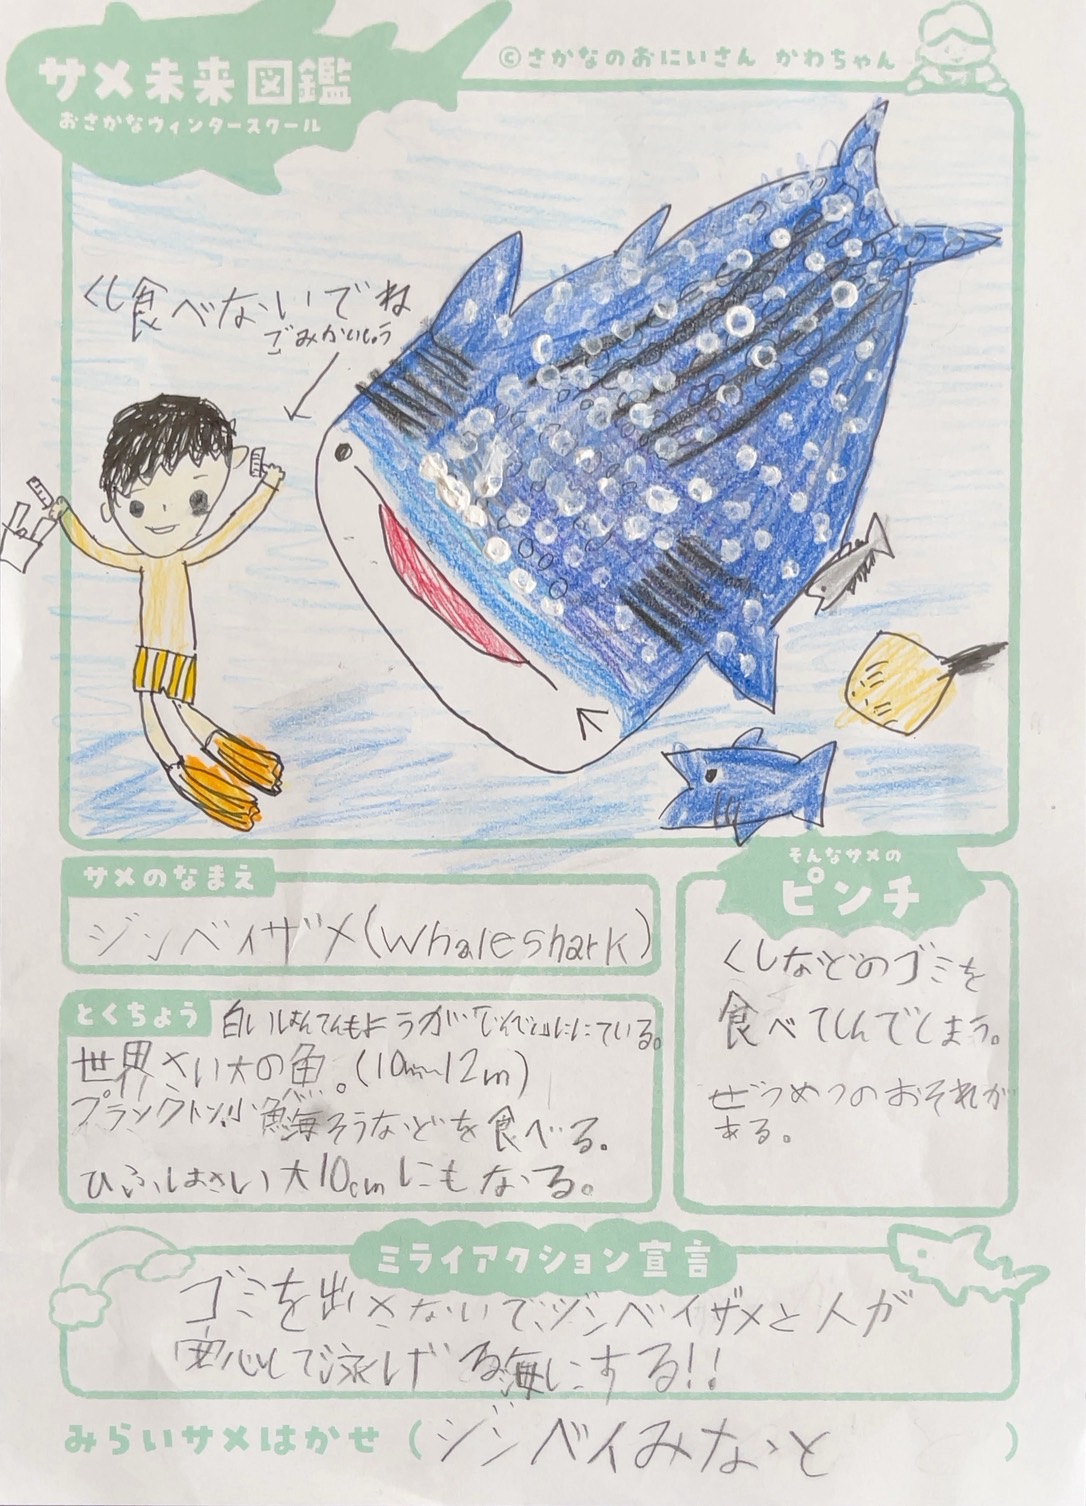 サメ未来図鑑
おさかなウィンタースクール
©さかなのおにいさん かわちゃん
くし食べないでね
ごみかいしゅう
サメのなまえ
ジンベイザメ(Whaleshark)
とくちょう
白いはんてんもようが「じんべい」ににている。
世界さい大の魚。(10m~12m)
プランクトン、小魚、海そうなどを食べる。
ひふはさい大10cmにもなる。
そんなサメの
ピンチ
くしなどのゴミを
食べてしんでしまう。
ぜつめつのおそれが
ある。
ミライアクション宣言
ゴミを出さないで、ジンベイザメと人が
安心して泳げる海にする!!
みらいサメはかせ(ジンベイみなと)